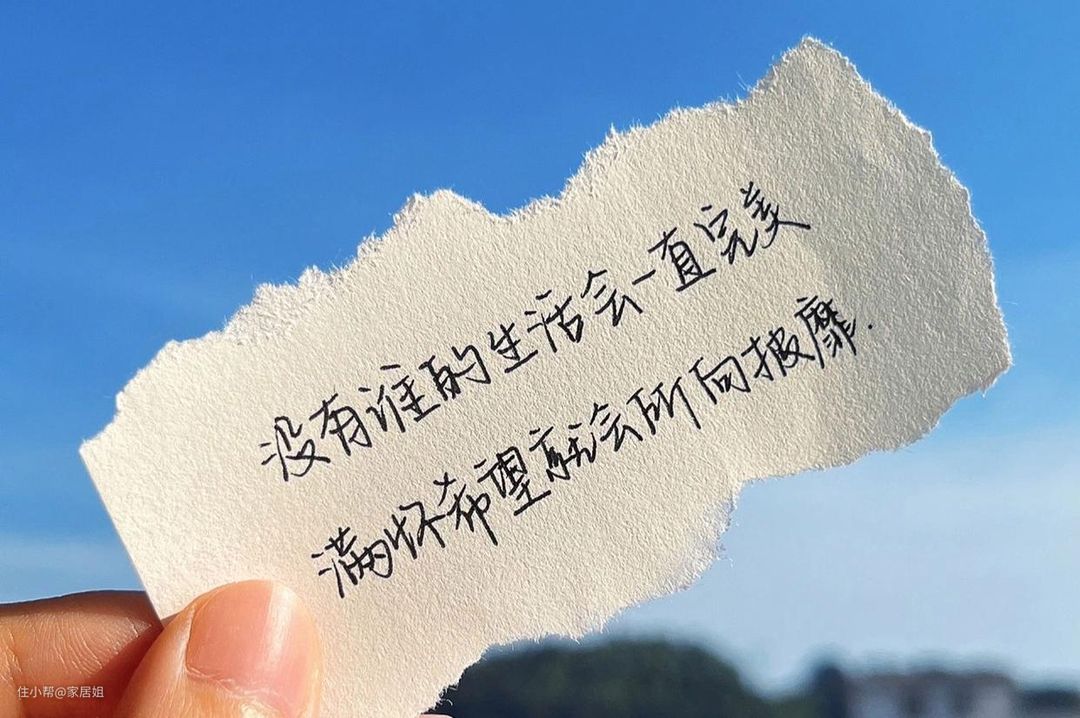 没有谁的生活会一直完美
满怀希望就会所向披靡.
住小帮@家居姐